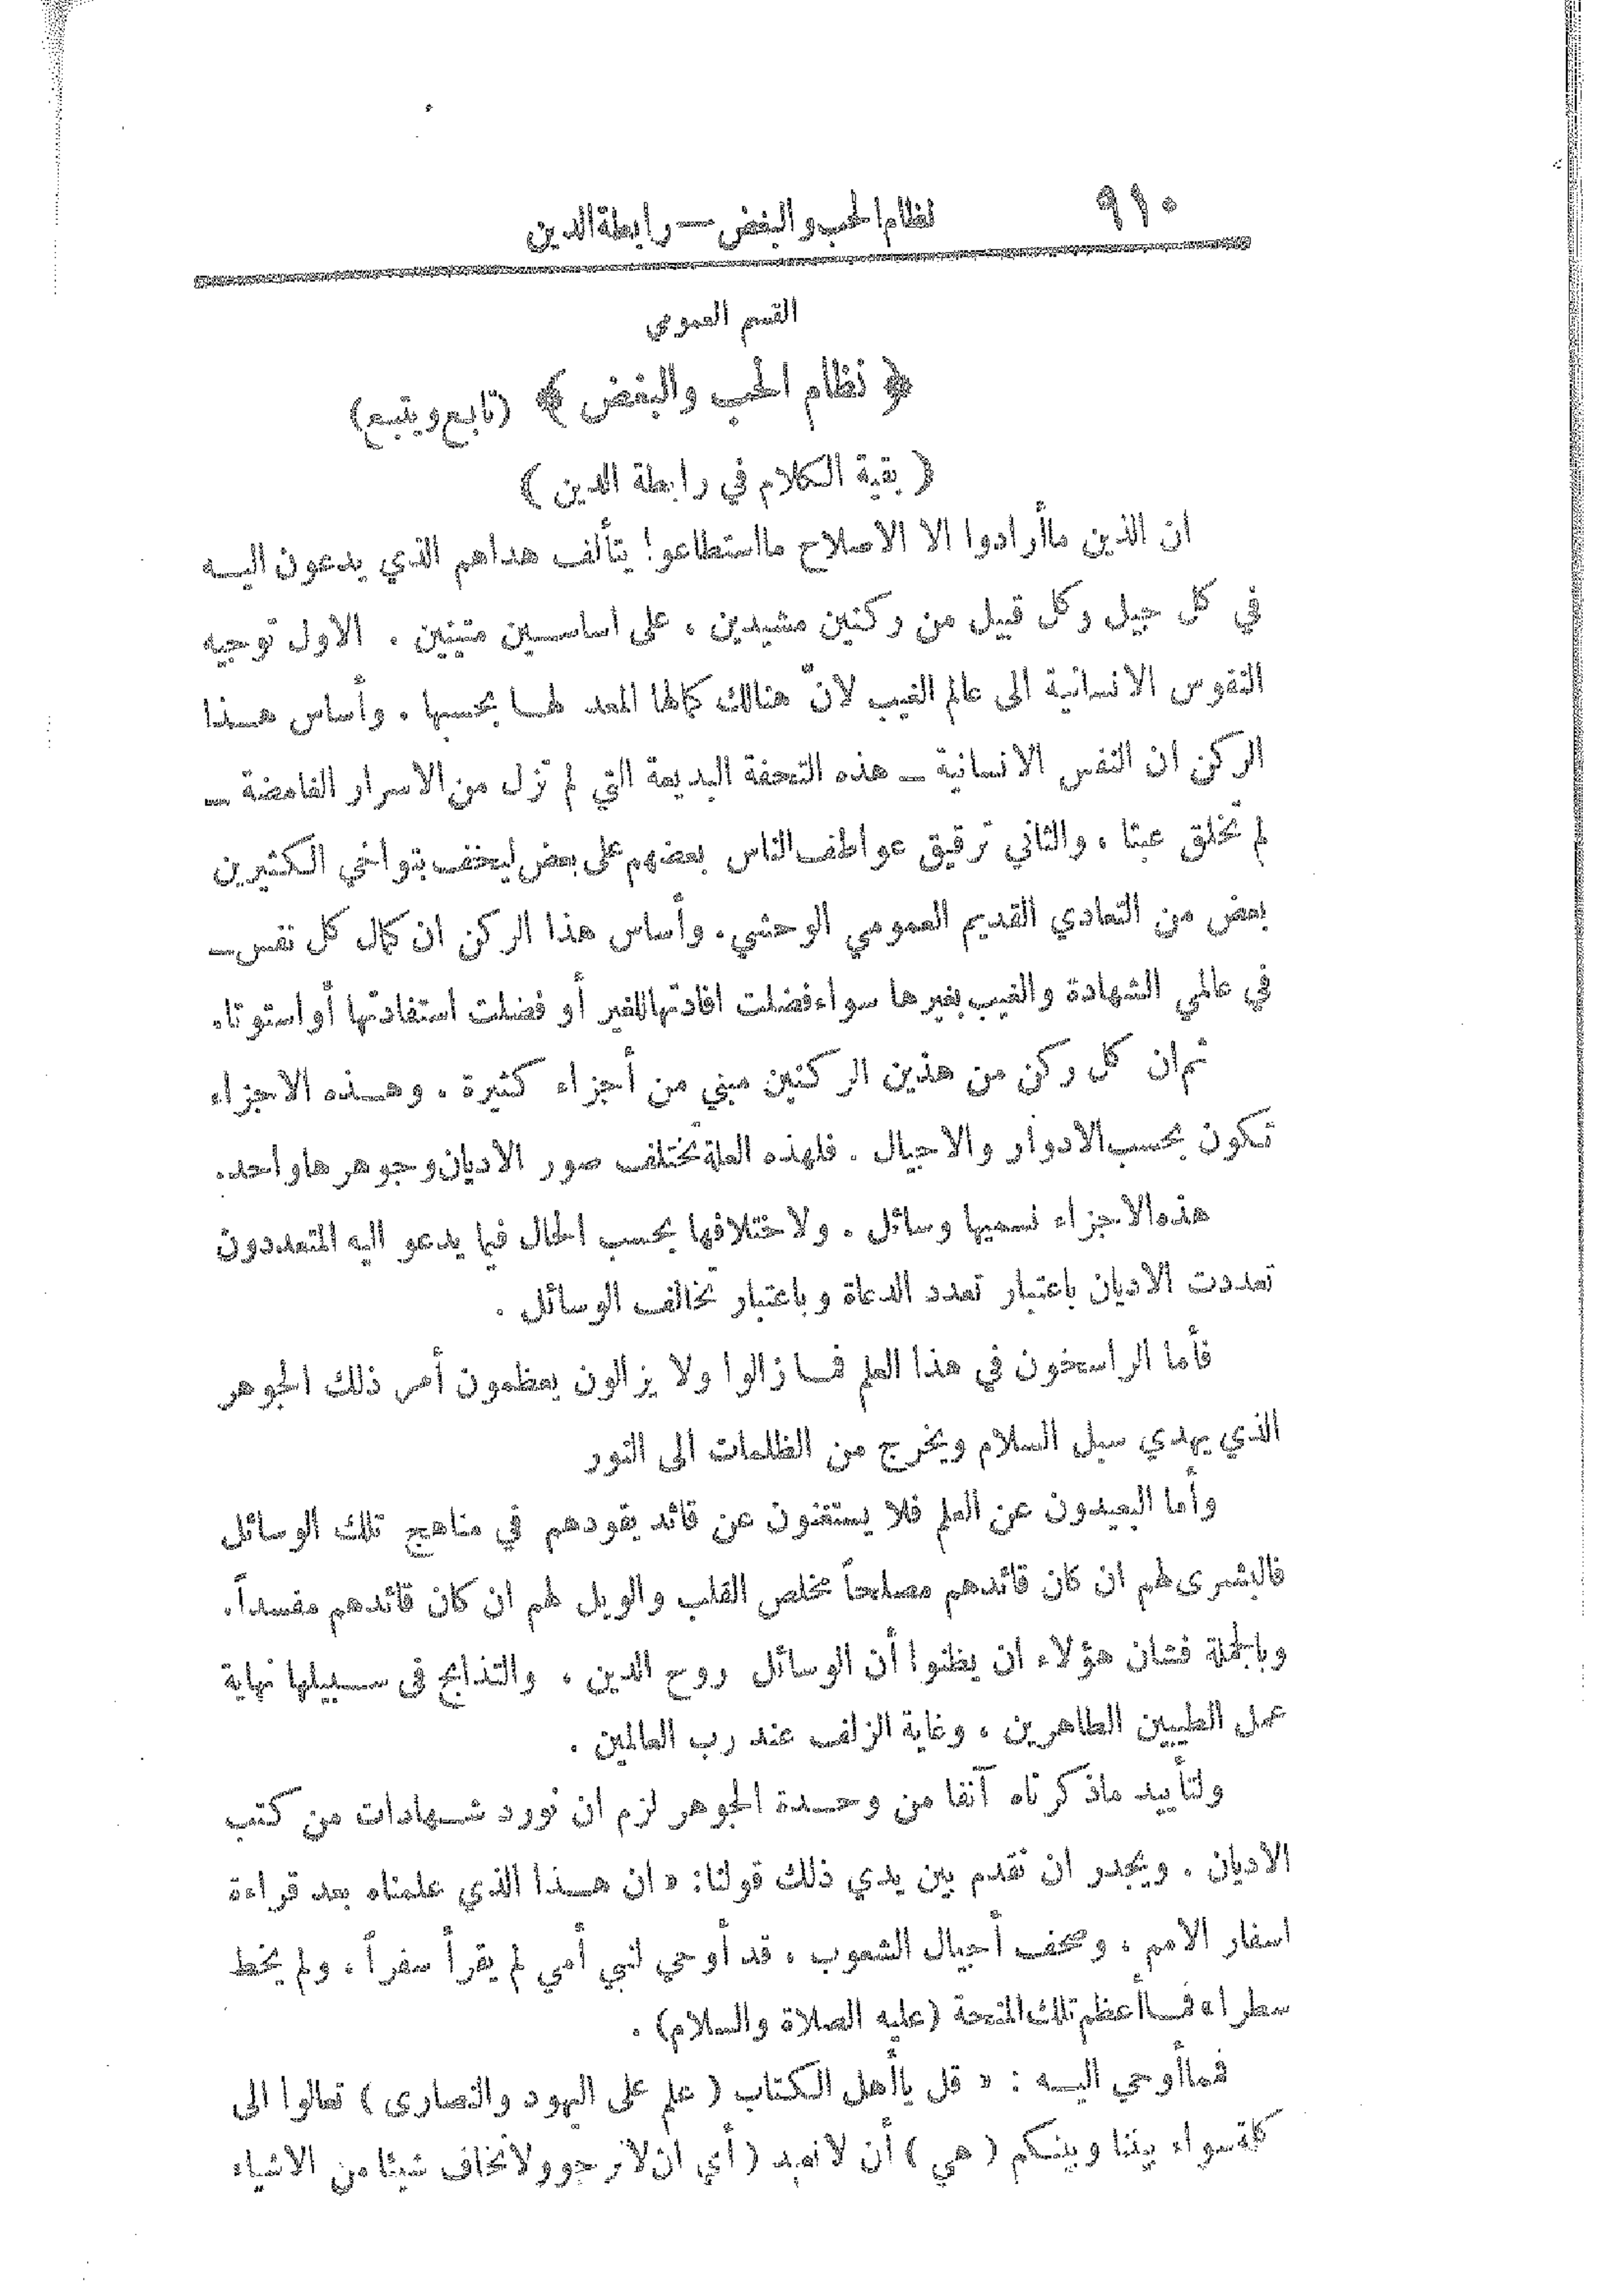 ٩١٠ نظام الحب والبغض — رابطة الدين
القسم العمومي
﴿ نظام الحب والبغض ﴾ (تابع ويتبع)
( بقية الكلام في رابطة الدين )
ان الذين ماأرادوا الا الاصلاح مااستطاعوا يتألف هداهم الذي يدعون اليه
في كل جيل وكل قبيل من ركنين مشيدين ، على اساسين متينين . الاول توجيه
النفوس الانسانية الى عالم الغيب لانّ هنالك كمالها المعد لها بحسبها . وأساس هذا
الركن ان النفس الانسانية ــ هذه التحفة البديعة التي لم تزل من الاسرار الغامضة ــ
لم تخلق عبثا ، والثاني ترقيق عواطف الناس بعضهم على بعض ليخفف بتواخي الكثيرين
بعض من التعادي القديم العمومي الوحشي . وأساس هذا الركن ان كمال كل نفس ــ
في عالمي الشهادة والغيب بغيرها سواء فضلت افادتها للغير أو فضلت استفادتها أو استوتا .
ثم ان كل ركن من هذين الركنين مبني من أجزاء كثيرة . وهذه الاجزاء
تكون بحسب الادوار والاجيال . فلهذه العلة تختلف صور الاديان وجوهرها واحد .
هذه الاجزاء نسميها وسائل . ولاختلافها بحسب الحال فيما يدعو اليه المتعددون
تعددت الاديان باعتبار تعدد الدعاة وباعتبار تخالف الوسائل .
فأما الراسخون في هذا العلم فما زالوا ولا يزالون يعظمون أمر ذلك الجوهر
الذي يهدي سبل السلام ويخرج من الظلمات الى النور
وأما البعيدون عن العلم فلا يستغنون عن قائد يقودهم في مناهج تلك الوسائل
فالبشرى لهم ان كان قائدهم مصلحاً مخلص القلب والويل لهم ان كان قائدهم مفسداً .
وبالجملة فشان هؤلاء ان يظنوا أن الوسائل روح الدين ، والتذابح في سبيلها نهاية
عمل الطيبين الطاهرين ، وغاية الزلف عند رب العالمين .
ولتأييد ماذكرناه آنفا من وحدة الجوهر لزم ان نورد شهادات من كتب
الاديان . ويجدر ان نقدم بين يدي ذلك قولنا : « ان هذا الذي علمناه بعد قراءة
اسفار الامم ، وصحف أجيال الشعوب ، قد أوحي لنبي أمي لم يقرأ سفراً ، ولم يخط
سطرا » فما أعظم تلك المنحة (عليه الصلاة والسلام) .
فمما أوحي اليه : « قل ياأهل الكتاب ( علم على اليهود والنصارى ) تعالوا الى
كلمة سواء بيننا وبينكم ( هي ) أن لا نعبد ( أي ان لا نرجو ولا نخاف شيئا من الاشياء